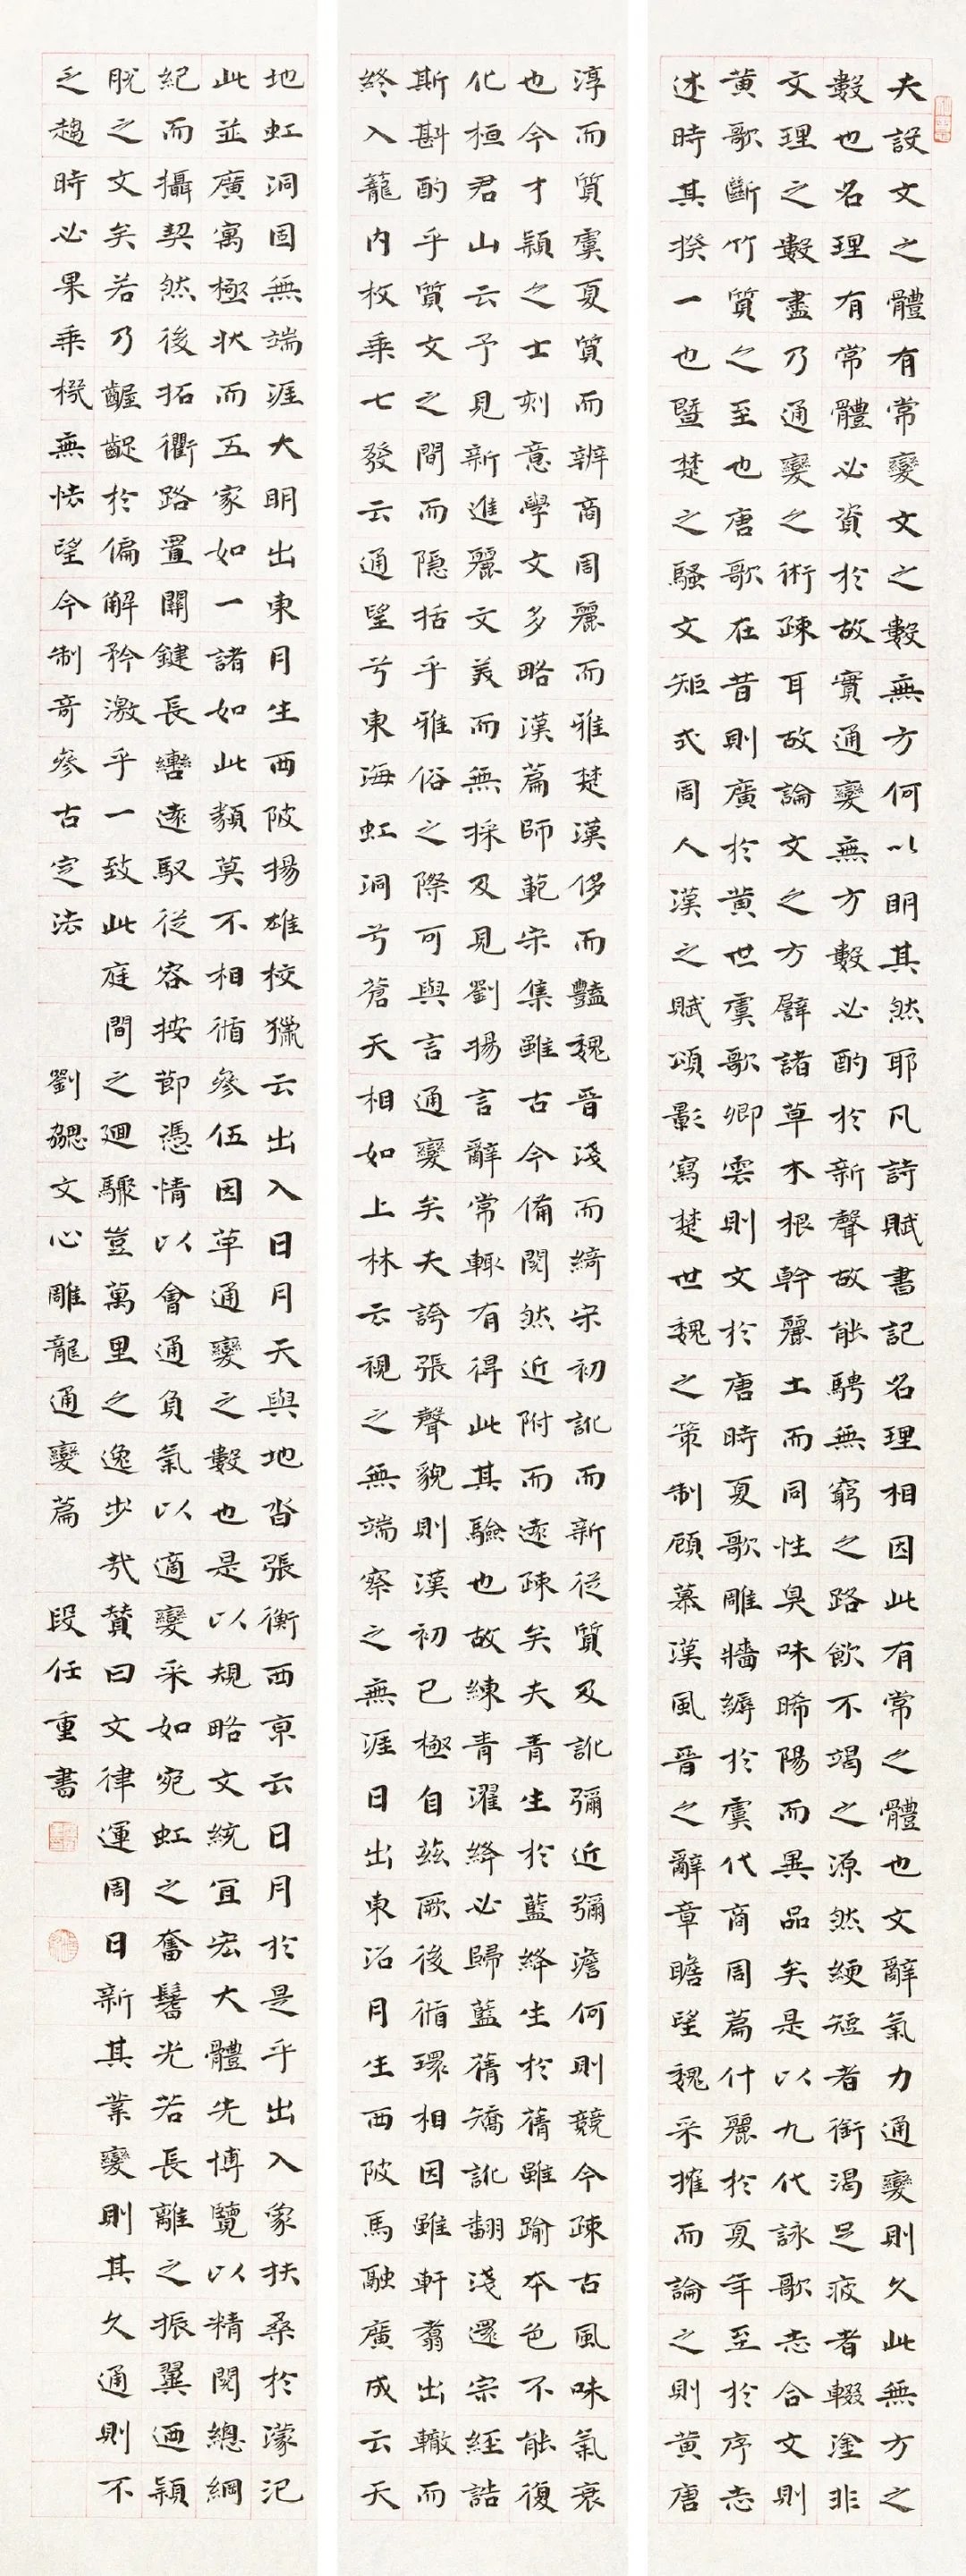 夫設文之體有常變文之數無方何以明其然耶凡詩賦書記名理相因此有常之體也文辭氣力通變則久此無方之
數也名理有常體必資於故實通變無方數必酌於新聲故能騁無窮之路飲不竭之源然綆短者銜渴足疲者輟塗非
文理之數盡乃通變之術疎耳故論文之方譬諸草木根幹麗土而同性臭味晞陽而異品矣是以九代詠歌志合文則
黃歌斷竹質之至也唐歌在昔則廣於黃世虞歌卿雲則文於唐時夏歌雕牆縟於虞代商周篇什麗於夏年至於序志
述時其揆一也暨楚之騷文矩式周人漢之賦頌影寫楚世魏之策制顧慕漢風晉之辭章瞻望魏采搉而論之則黃唐
淳而質虞夏質而辨商周麗而雅楚漢侈而豔魏晉淺而綺宋初訛而新從質及訛彌近彌澹何則競今疎古風味氣衰
也今才穎之士刻意學文多略漢篇師範宋集雖古今備閱然近附而遠疎矣夫青生於藍絳生於蒨雖踰本色不能復
化桓君山云予見新進麗文美而無採及見劉揚言辭常輒有得此其驗也故練青濯絳必歸藍蒨矯訛翻淺還宗經誥
斯斟酌乎質文之間而隱括乎雅俗之際可與言通變矣夫誇張聲貌則漢初已極自茲厥後循環相因雖軒翥出轍而
終入籠內枚乘七發云通望兮東海虹洞兮蒼天相如上林云視之無端察之無涯日出東沼月生西陂馬融廣成云天
地虹洞固無端涯大明出東月生西陂揚雄校獵云出入日月天與地沓張衡西京云日月於是乎出入象扶桑於濛汜
此並廣寓極狀而五家如一諸如此類莫不相循參伍因革通變之數也是以規略文統宜宏大體先博覽以精閱總綱
紀而攝契然後拓衢路置關鍵長轡遠馭從容按節憑情以會通負氣以適變采如宛虹之奮鬐光若長離之振翼迺穎
脫之文矣若乃齷齪於偏解矜激乎一致此庭間之迴驟豈萬里之逸步哉贊曰文律運周日新其業變則其久通則不
乏趨時必果乘機無怯望今制奇參古定法 劉勰文心雕龍通變篇 段任重書